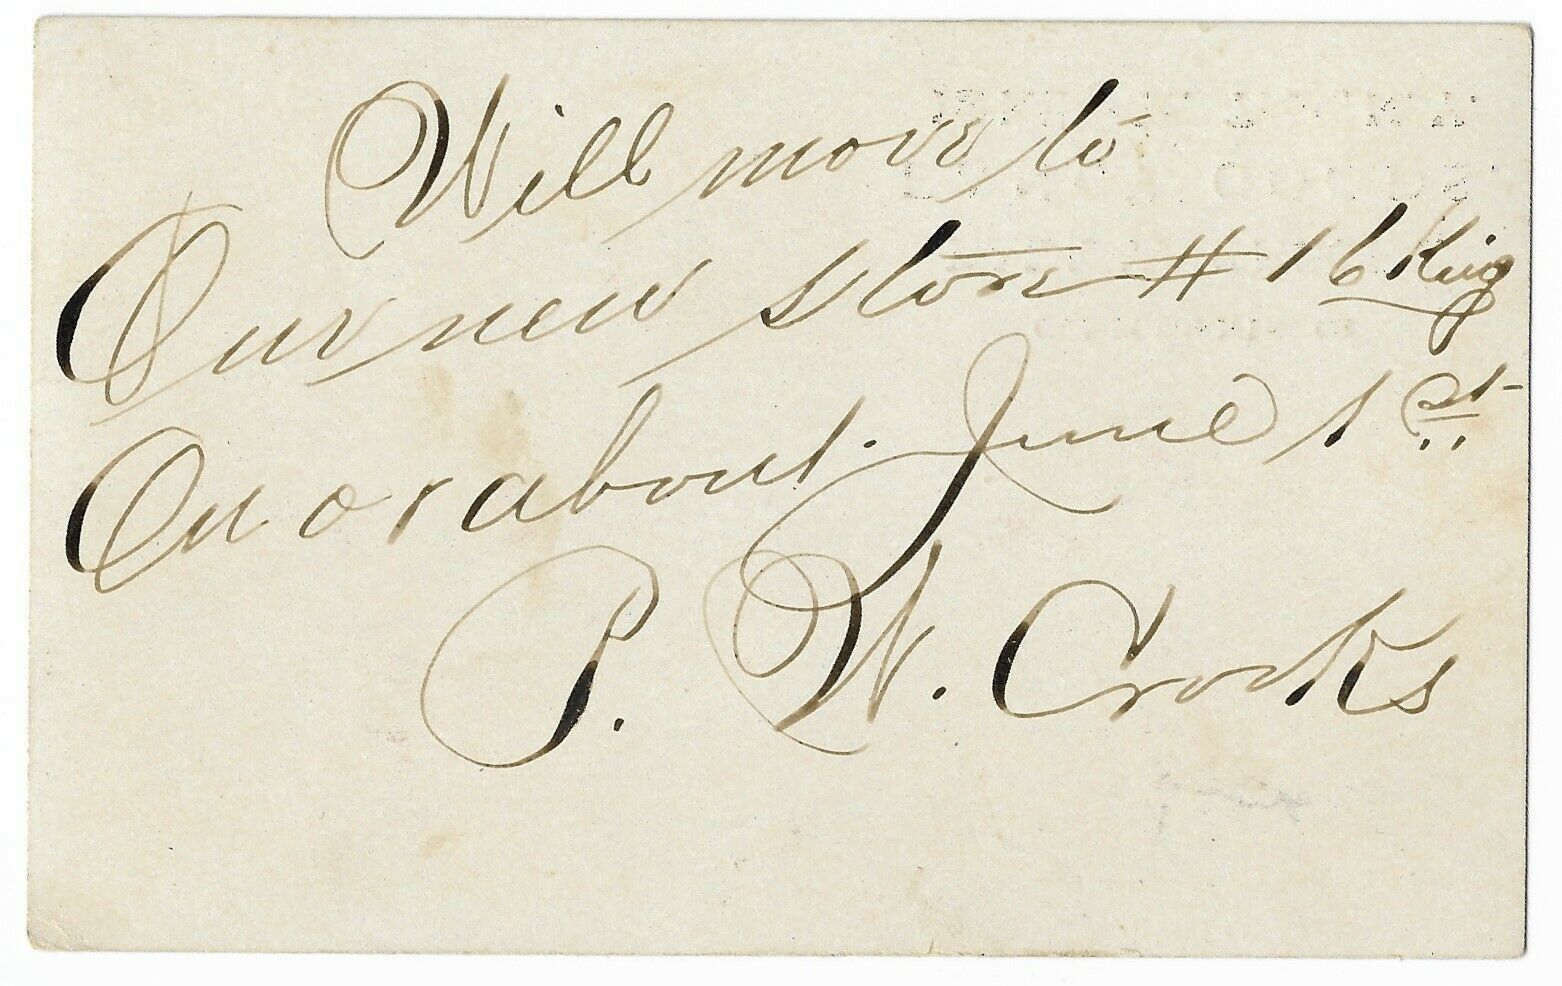 Will move to
Our new store # 16 King
On or about June 1st
P. W. Crooks